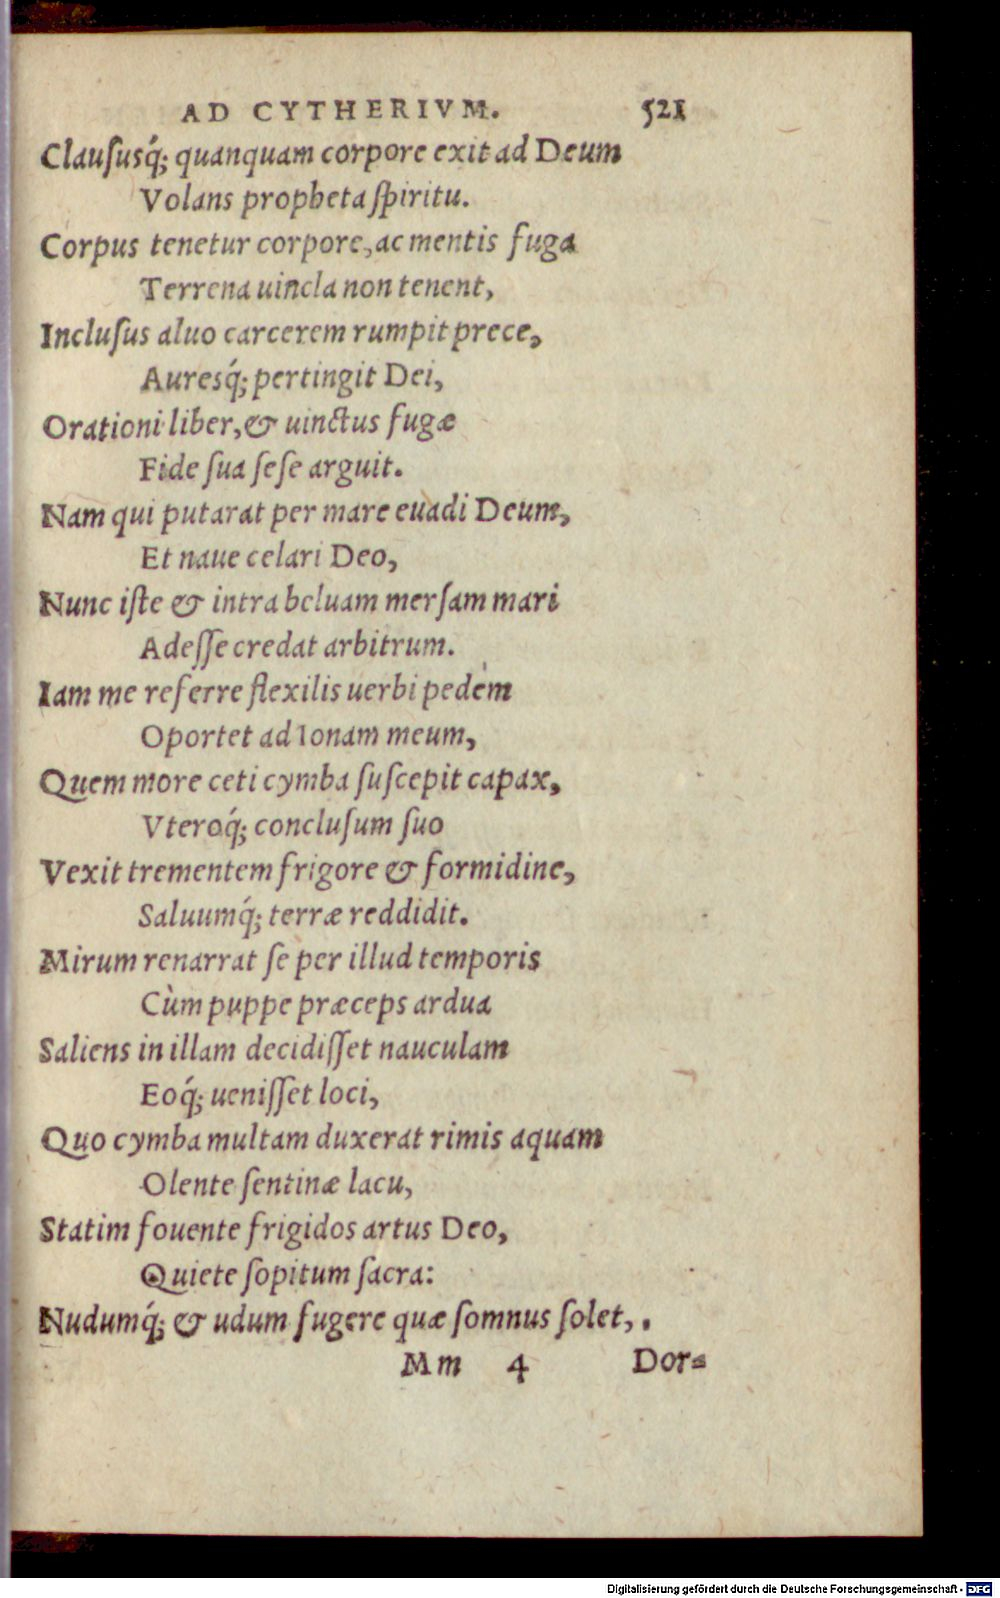 AD CYTHERIVM. 521
Clauſusq́; quanquam corpore exit ad Deum
Volans propheta ſpiritu.
Corpus tenetur corpore, ac mentis fuga
Terrena uincla non tenent,
Incluſus aluo carcerem rumpit prece,
Auresq́; pertingit Dei,
Orationi liber, & uinctus fugæ
Fide ſua ſeſe arguit.
Nam qui putarat per mare euadi Deum,
Et naue celari Deo,
Nunc iſte & intra beluam merſam mari
Adeſſe credat arbitrum.
Iam me referre flexilis uerbi pedem
Oportet ad Ionam meum,
Quem more ceti cymba ſuſcepit capax,
Vteroq́; concluſum ſuo
Vexit trementem frigore & formidine,
Saluumq́; terræ reddidit.
Mirum renarrat ſe per illud temporis
Cùm puppe præceps ardua
Saliens in illam decidiſſet nauculam
Eoq́; ueniſſet loci,
Quo cymba multam duxerat rimis aquam
Olente ſentinæ lacu,
Statim fouente frigidos artus Deo,
Quiete ſopitum ſacra:
Nudumq́; & udum fugere quæ ſomnus ſolet, .
Mm 4 Dor=
Digitalisierung gefördert durch die Deutsche Forschungsgemeinschaft - DFG